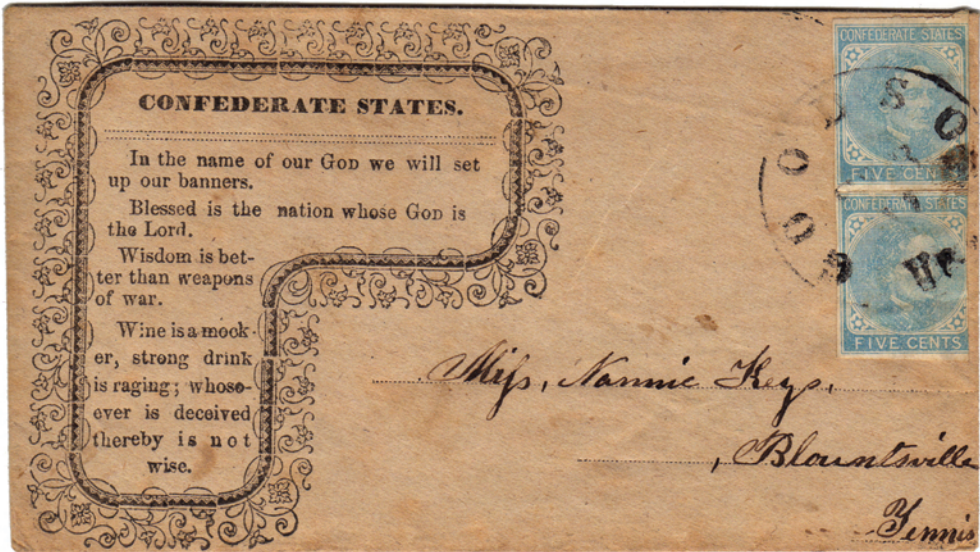 CONFEDERATE STATES.
In the name of our GOD we will set
up our banners.
Blessed is the nation whose GOD is
the Lord.
Wisdom is bet-
ter than weapons
of war.
Wine is a mock
er, strong drink
is raging; whoso-
ever is deceived
thereby is not
wise.
CONFEDERATE STATES
FIVE CENTS
CONFEDERATE STATES
FIVE CENTS
Miss, Nannie Keys,
, Blountsville
Tennis